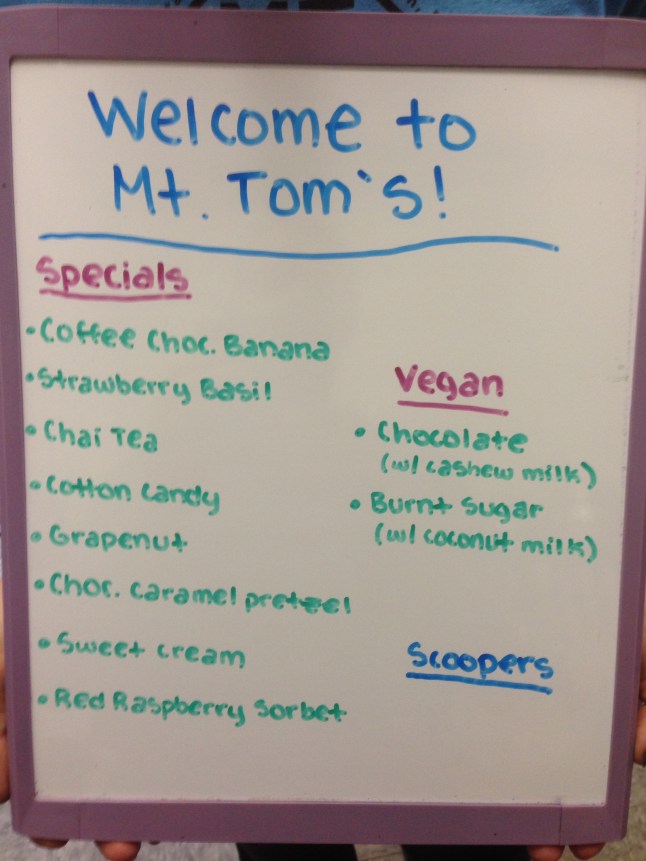 Welcome to
Mt. Tom's!
Specials
• Coffee Choc. Banana
• Strawberry Basil
• Chai Tea
• Cotton Candy
• Grapenut
• Choc. Caramel pretzel
• Sweet cream
• Red Raspberry Sorbet
Vegan
• Chocolate
(w/ cashew milk)
• Burnt Sugar
(w/ coconut milk)
Scoopers